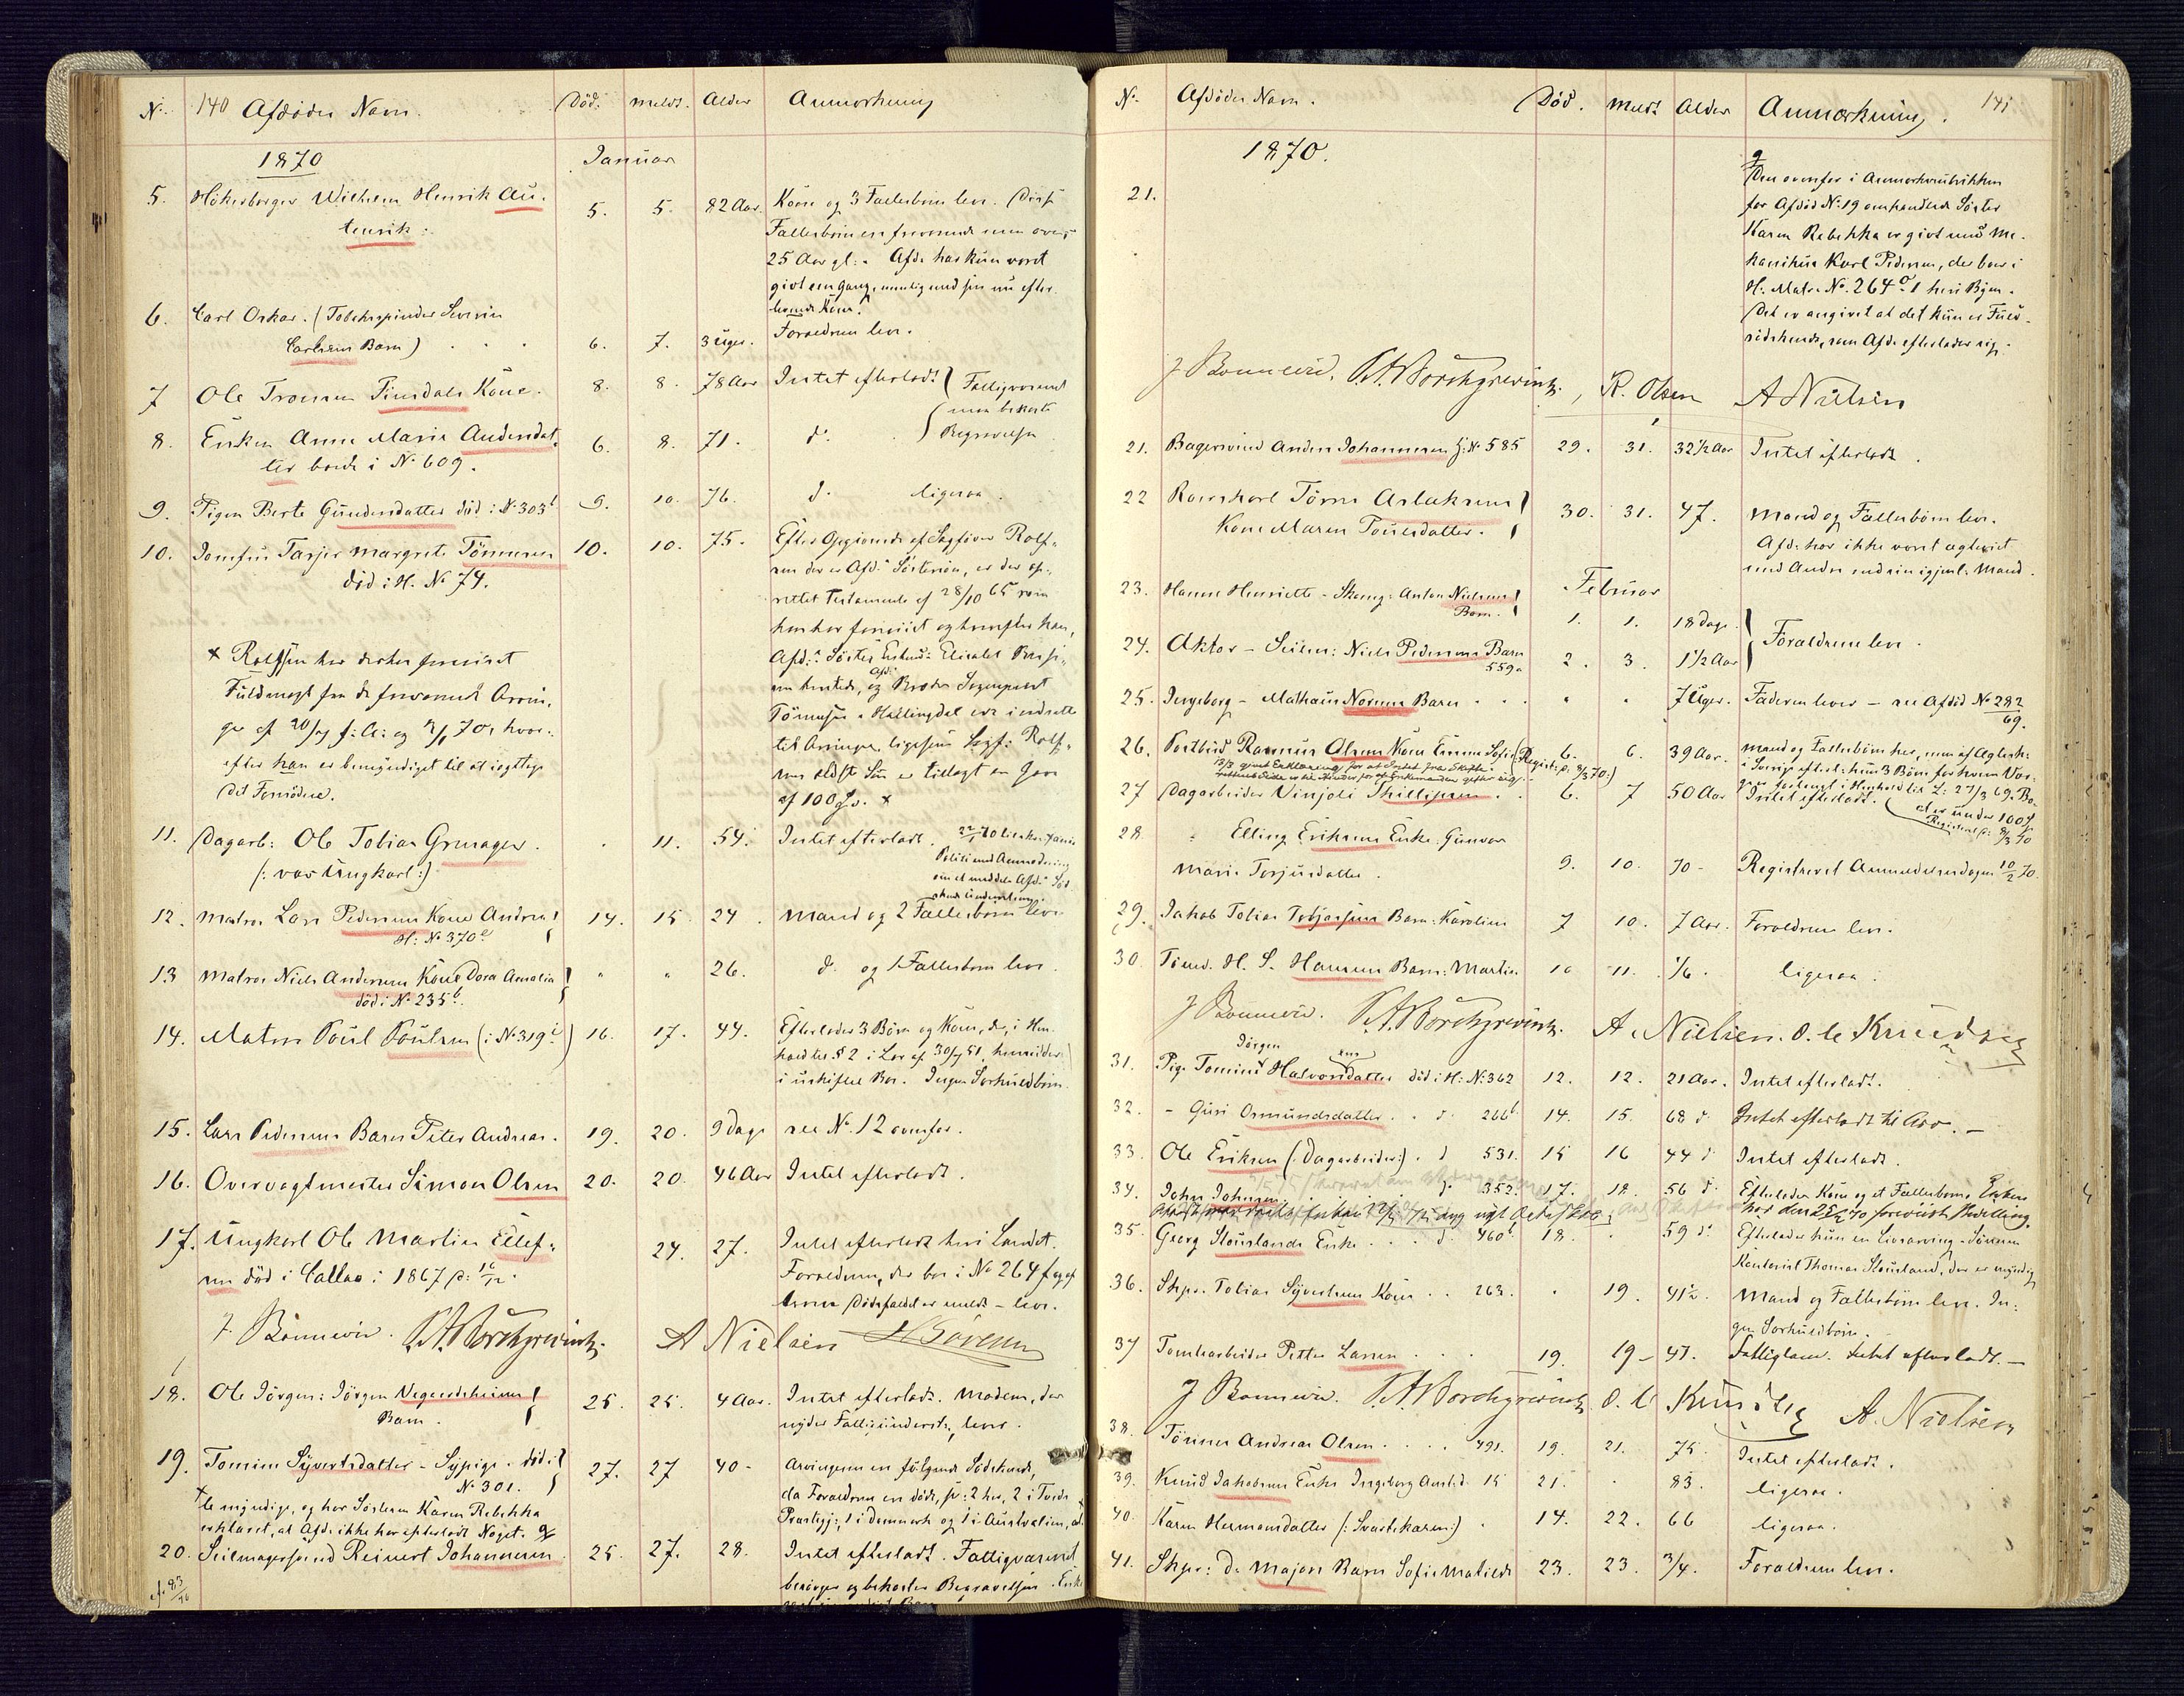 N. 140 Afdødes Navn. Død. Meldt. Alder Anmærkning
1870 Januar
5. Høkerborger Wilhelm Henrik Au- 5. 5. 82 Aar. Kone og 3 Fællesbørn lev. Disse
tenrik. Fællesbørn ere fraværende men over
25 Aar gl: Afd. har kun været
givt een gang, nemlig med sin nu efter-
levende Kone.
6. Carl Oskar. (Tobakspinder Severin
Carlsens Barn) 6. 7. 3 Uger. Forældrene lev.
7 Ole Tronsen Finsdals Kone. 8. 8. 78 Aar Intet efterladt. Fattigvæsenet
8. Enken Anne Marie Andersdat- 6. 8. 71. do. maa bekoste Begravelsen
ter boede i No 609.
9. Pigen Berte Gundersdatter død i No 303b 9. 10. 76. do. ligesaa.
10. Jomfru Tarjer Margrete Tønnesen 10. 10. 75. Efter Opgivende af Sagfører Rolf-
død i H. No 74. sen der er Afd.s Søstersøn, er der op-
rettet Testamente af 28/10 65 som
han har foreviist og hvorefter han,
Afd.s Søster Enkefr: Elisabet
og Afd. Broder Sogneprest
Tønnesen i Hallingdal ere indsatte
til Arvinger, ligesom Sagf: Rolf-
sens ældste Søn er tillagt en Gave
af 100 Sp. x
x Rolfsen har derhos foreviist
Fuldmagt fra de fraværende Arvin-
ger af 20/ f: A: og 2/1 70, hvor-
efter han er bemyndiget til at iagttage
det Fornødne.
11. Dagarb: Ole Tobias Grunager. 11. 54. Intet efterladt.
(: var Ungkarl :)
12. Matros Lars Pedersens Kone Andrea 14. 15 24. Mand og 2 Fællesbørn lev.
H: No 370
13 Matros Niels Andersens Kone Dora Amalia " " 26. do. og 1 Fællesbarn lev.
død i No 235b.
14. Matros Poul Poulsen (i No 319) 16. 17. 44. Efterlader 3 Børn og Kone, der, i Hen-
hold til § 2 i Lov af 30/7 51, hensidder
i uskiftet Bo. Ingen Særkuldbørn.
15. Lars Pedersens Barn Peter Andreas. 19. 20. 9 Dage see No. 12 ovenfor.
16. Overvagtmester Simon Olsen 20. 20. 46 Aar Intet efterladt.
17. Ungkarl Ole Martin Ellef- 24. 27. Intet efterladt her i Landet.
sen død i Callao i 1867 Forældrene, der bor i No 264 f og af
hvem Dødsfaldet er meldt - lev.
J. Bonnevie. Chr. A. Borchgrevink. A Nielsen
18. Ole Jørgen: Jørgen Vegaardsheiens 25. 25. 4 Aar. Intet efterladt. Moderen, der
Barn. nyder Fattigunderst:, lever.
19. Tomine Syvertsdatter - Sypige. død i 27. 27 40 - Arvingerne ere følgende Sødskende,
No 301. da Forældrene ere døde, 2 her, 2 i Tvede
le myndige, og har Søsteren Karen Rebekka Præstegj:, 1 i Danmark og 1 i Australien, al-
erklæret, at Afd. ikke har efterladt Noget.
20. Seilmagersvend Reinert Johannesen 25. 27. 28. Intet efterladt. Fattigvæsenet
besørger og bekoster Begravelsen. Enke
N. Afdødes Navn. Død. Meldt Alder Anmærkning. 141
1870.
21. Den ovenfor i Anmærkrubrikken
for Afdød No: 19 omhandlede Søster
Karen Rebekka er givt med Me-
kanikus Karl Pedersen, der boer i
H. Matr. No. 264 1 her i Byen.
Det er angivet at det kun er Fuld-
sødskende, som Afd. efterlader sig.
J Bonnevie. Chr. A. Borchgrevink. R. Olsen A Nielsen
21. Bagersvend Anders Johannesen i H: No 585 29. 31. 32 1/2 Aar Intet efterladt.
22 Rorskarl Tørres Aslaksens 30. 31. 47. Mand og Fællesbørn lev.
Kone Maren Tomesdatter. Afd. har ikke været ægteviet
med Andre end sin igjenl: Mand.
Februar
23. Hanne Henriette - Skomg: Anton Nielsens 1. 1. 18 Dage
Barn. Forældrene lev.
24. Aktor - Seilm: Niels Pedersens Barn 2. 3. 1 1/2 Aar
559a
25. Ingeborg - Mathæus Norums Barn " " 7 Uger. Faderen lever - see Afdød No 282/69.
26. Postbud Rasmus Olsens Kone Emma Sofie 6. 6. 39 Aar.
27 Dagarbeider Vinjoli Phillipsen. 6. 7 50 Aar Intet efterladt.
28. Elling Eriksens Enke Gunvor
Marie Terjusdatter 9. 10. 70 - Registreret Anmeldelsesdagen 10/2 70.
29. Jakob Tobias Tobjørnsens Barn: Karoline 7 10. 7 Aar. Forældrene lev.
30. Tømd. H. S. Hansens Barn: Martin 10 11. 1/6. ligesaa.
J Bonnevie. Chr. A. Borchgrevink. A. Nielsen. O. C. Knudsen
31. Pige Tomine Jørgen Halvorsdatter død i H: No: 362 12. 12. 21 Aar. Intet efterladt.
32. - Guri Osmundsdatter. d. 266b 14. 15. 68 d. Intet efterladt til Arv.
33. Ole Eriksen (Dagarbeider:). d 531. 15 16 44 d. Intet efterladt.
34. John Johnsen. d. 352. 17. 18. 56 d. Efterlader Kone og et Fællesbarn. Enken
har den 70 foreviist Bevilling.
35. Georg Stouslands Enke. d. 460 18. " 59 d. Efterlader kun en Livsarving. Sønnen
Kontorist Thomas Stousland, der er myndig
36. Skpr. Tobias Syvertsens Kone. 263. " 19. 41 1/2. Mand og Fællesbørn lev. In-
gen Særkuldbørn.
37 Tomtearbeider Petter Larsen. 19. 19 - 47. Fattiglem. Intet efterladt.
J Bonnevie. Chr. A. Borchgrevink O. C. Knudsen A. Nielsen
38. Tønnes Andreas Olsen. 491. 19. 21. 75. Intet efterladt.
39. Knud Jakobsens Enke Ingeborg 15 21. " 83. ligesaa.
40. Karen Hermansdatter (: Svartekaren :) 14. 22. 66 ligesaa.
41. Skpr: de Majors Barn Sofie Matilde 23. 23. 3/4. Forældrene lev.